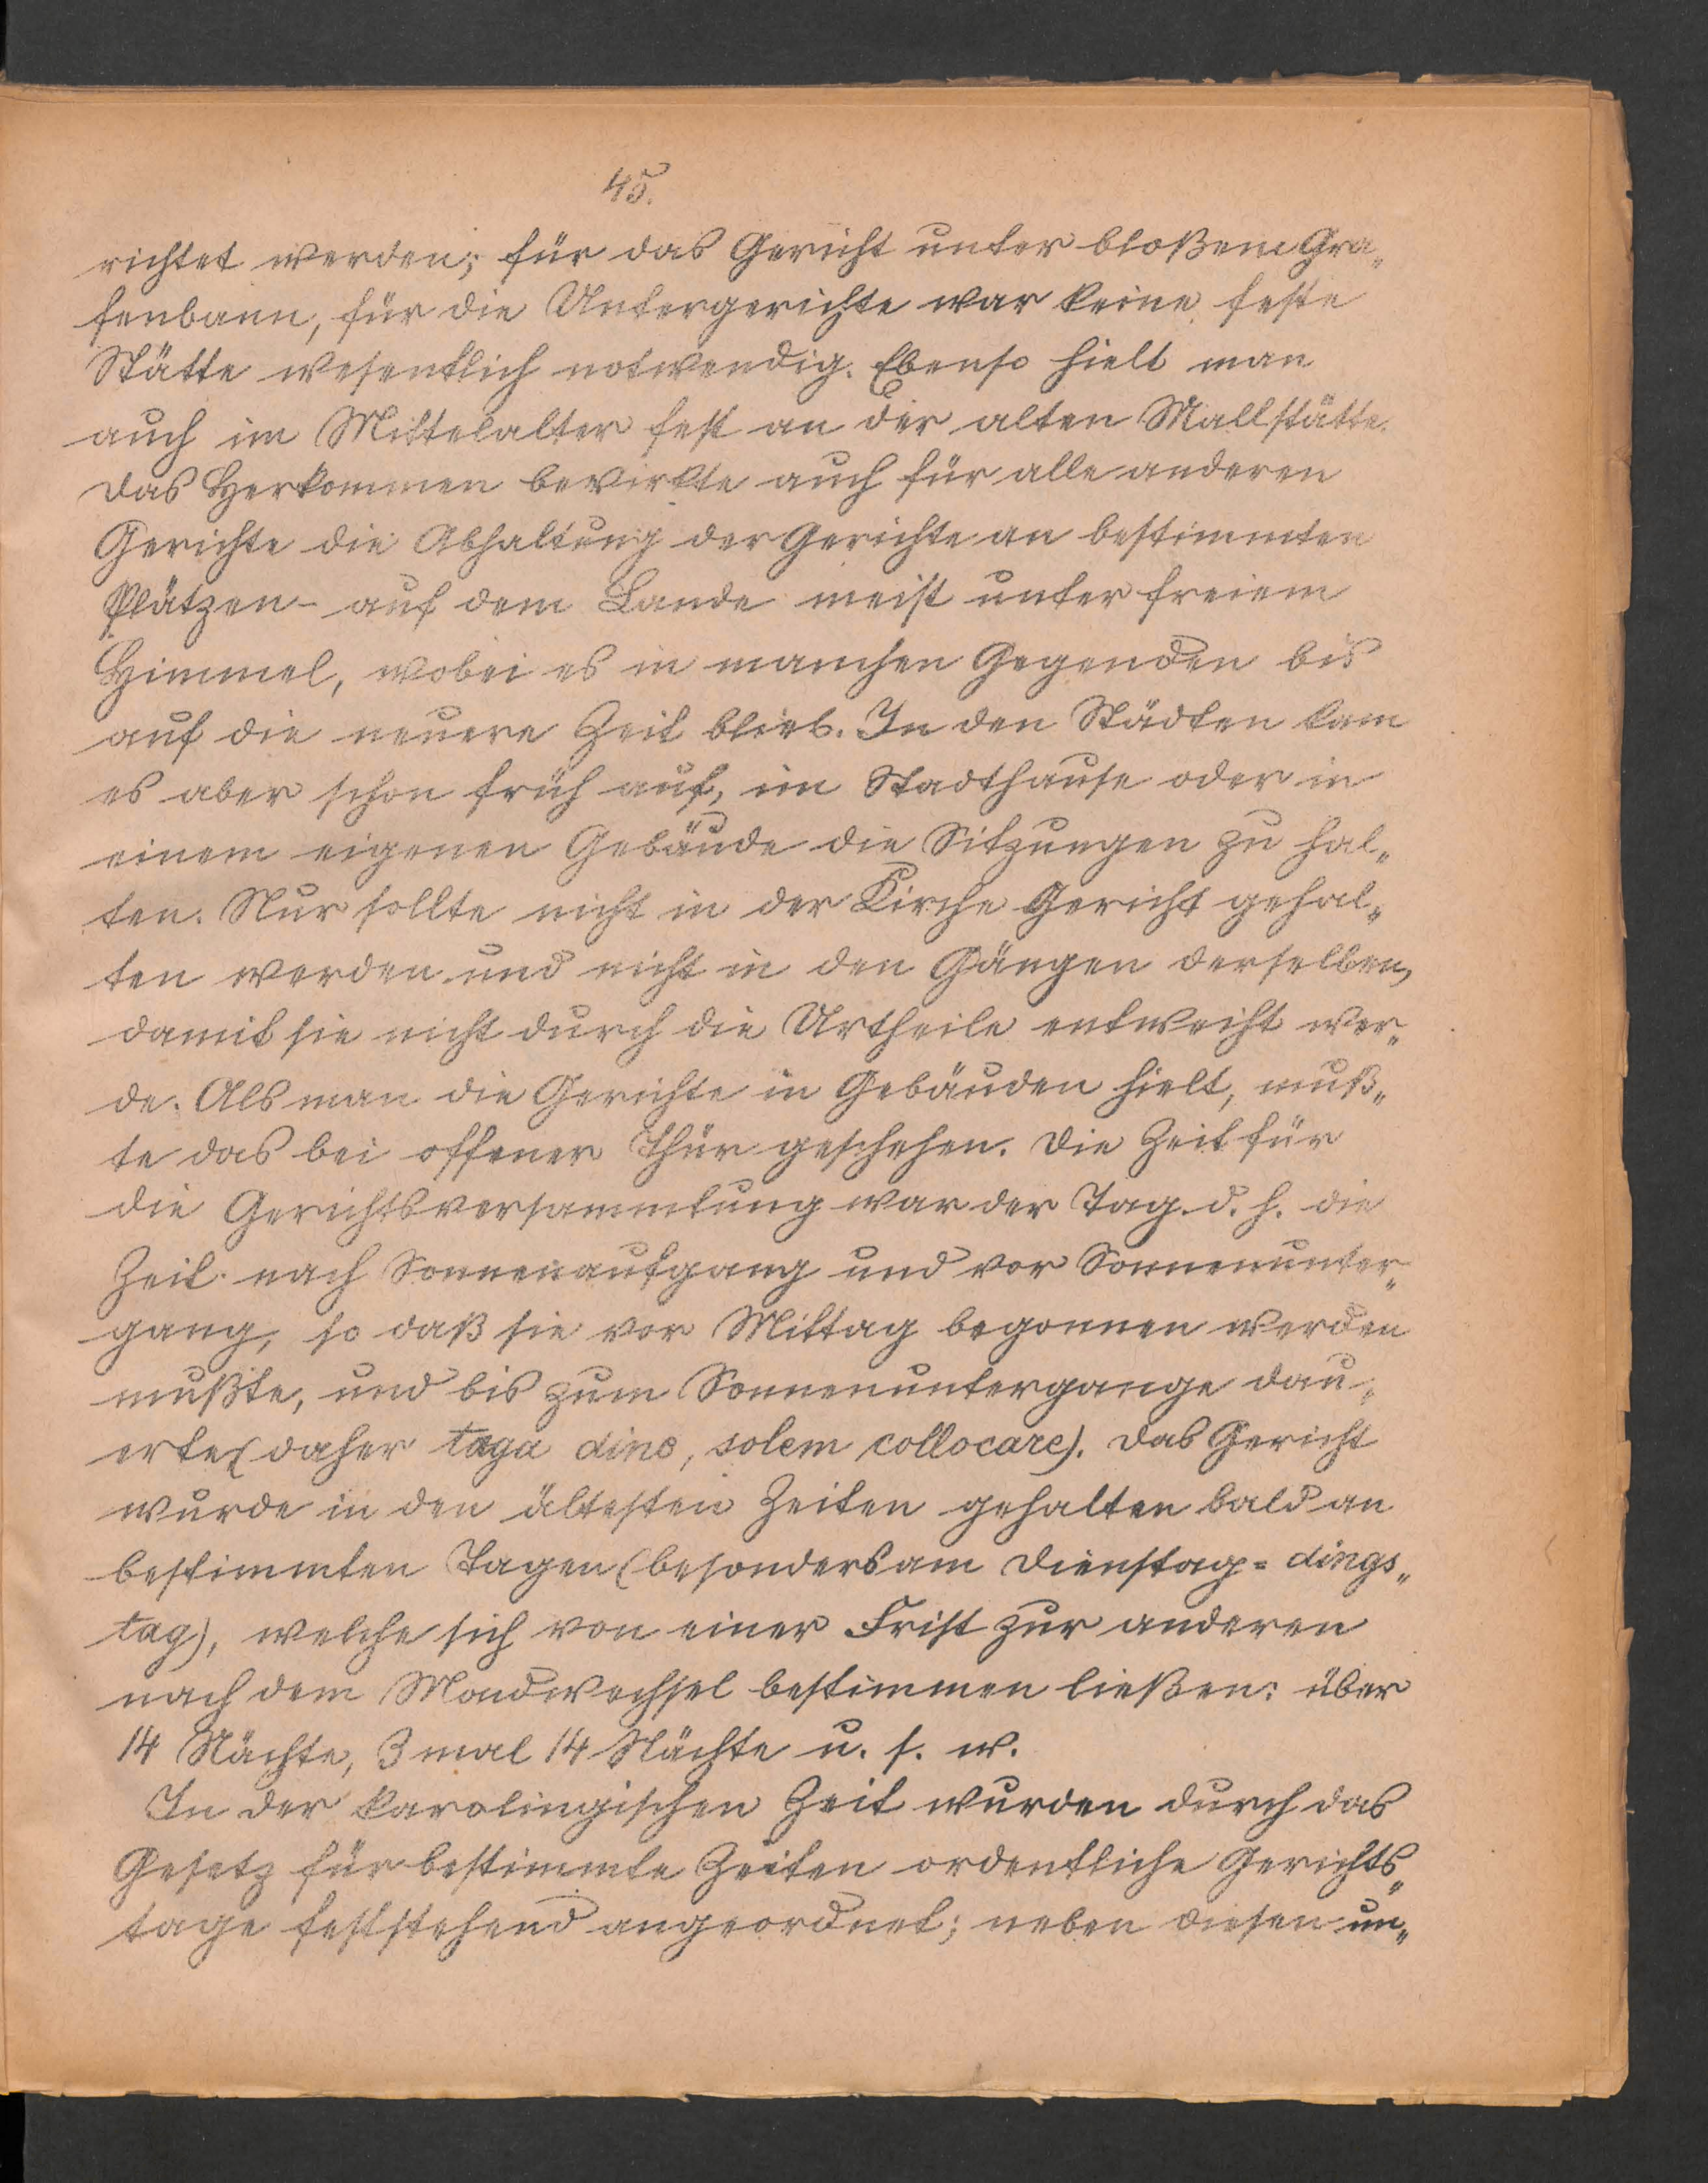 45.
richtet werden; für das Gericht unter bloßem Gra„
fenbann, für die Untergerichte war keine feste
Stätte wesentlich notwendig. Ebenso hielt man
auch im Mittelalter fest an der alten Mallstätte.
Das Herkommen bewirkte auch für alle anderen
Gerichte die Abhaltung der Gerichte an bestimmten
Plätzen - auf dem Lande meist unter freiem
Himmel, wobei es in manchen Gegenden bis
auf die neuere Zeit blieb. In den Städten kam
es aber schon früh auf, im Stadthause oder in
einem eigenen Gebäude die Sitzungen zu hal„
ten. Nur sollte nicht in der Kirche Gericht gehal„
ten werden und nicht in den Gängen derselben,
damit sie nicht durch die Urtheile entweiht wer„
de. Als man die Gerichte in Gebäuden hielt, muß„
te das bei offener Thür geschehen. Die Zeit für
die Gerichtsversammlung war der Tag. d. h. die
Zeit nach Sonnenaufgang und vor Sonnenunter„
gang, so daß sie vor Mittag begonnen werden
mußte, und bis zum Sonnenuntergange dau„
erte (daher taga dinc, solem collocare). Das Gericht
wurde in den ältesten Zeiten gehalten bald an
bestimmten Tagen (besonders am Dienstag = dings„
tag), welche sich von einer Frist zur anderen
nach dem Mondwechsel bestimmen ließen: über
14 Nächte, 3 mal 14 Nächte u. s. w.
In der karolingischen Zeit wurden durch das
Gesetz für bestimmte Zeiten ordentliche Gerichts„
tage feststehend angeordnet; neben diesen un„